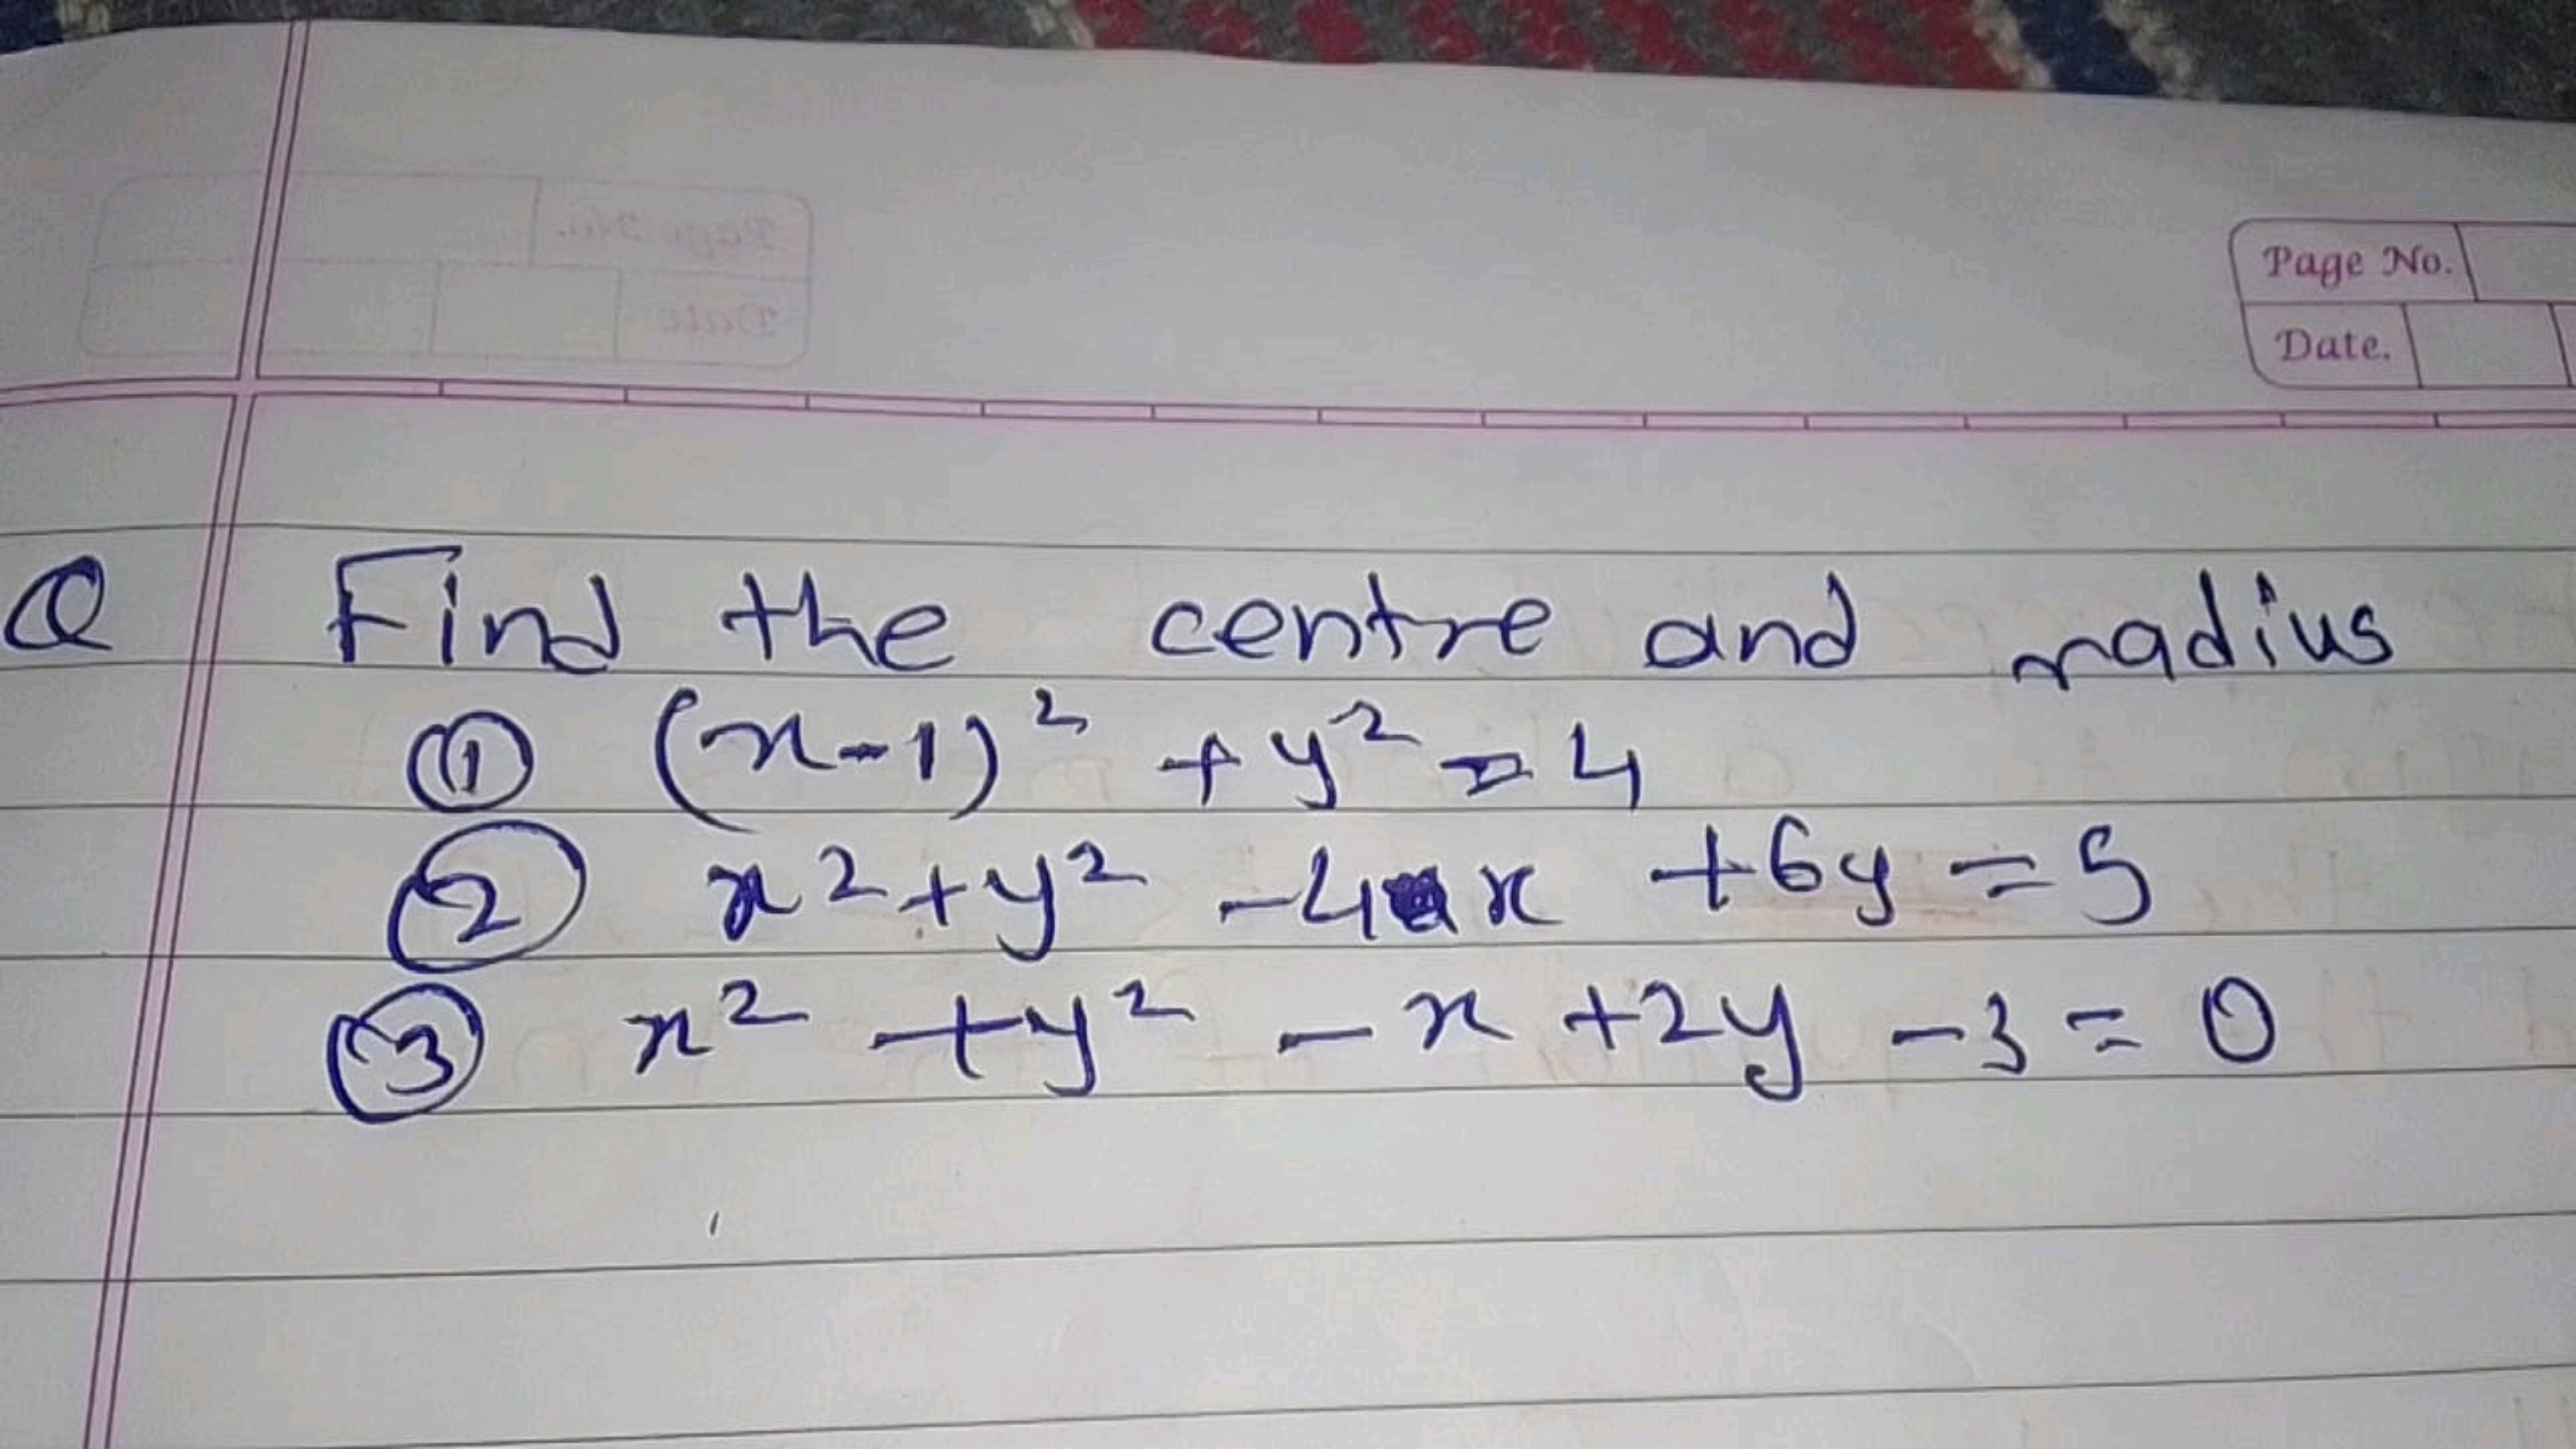 Page No.
Date.
Q Find the centre and radius
① (x-1)² + y² = 4
② x² + y² - 4x + 6y = 5
③ x² + y² - x + 2y - 3 = 0